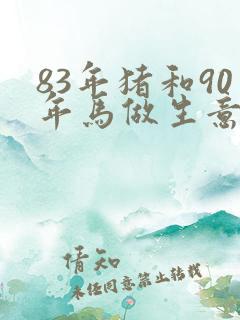 83年猪和90
年马做生意
情知
未经同意禁止转载